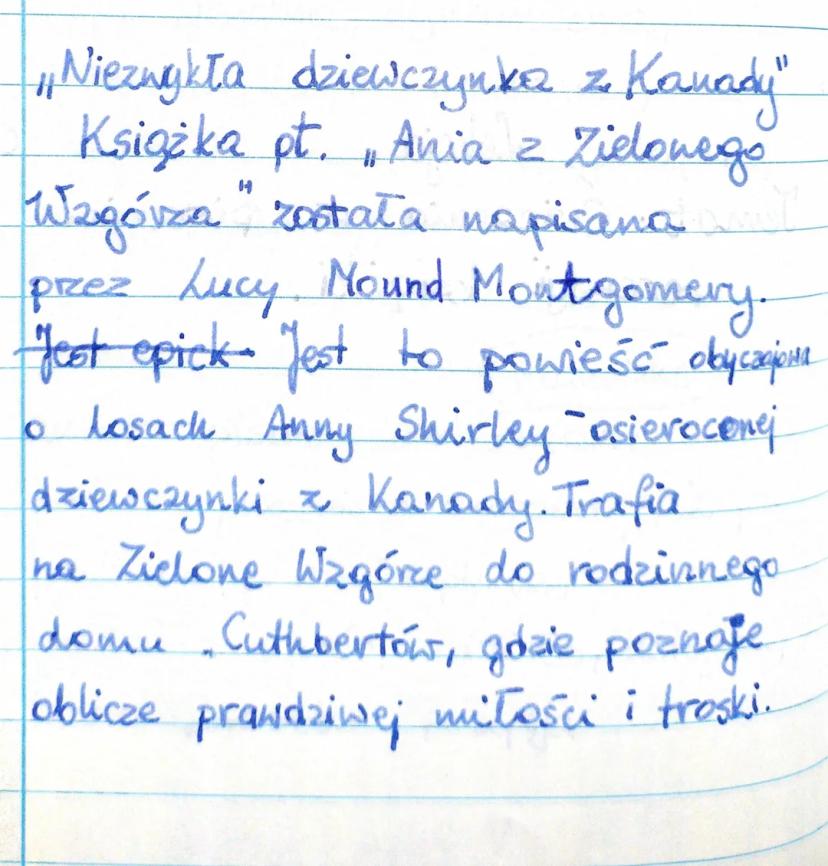 „Niezwykła dziewczynka z Kanady"
Książka pt. „Ania z Zielonego
Wzgórza" została napisana
przez Lucy Mound Montgomery.
Jest epick Jest to powieść obyczajowa
o losach Anny Shirley - osieroconej
dziewczynki z Kanady. Trafia
na Zielone Wzgórze do rodzinnego
domu Cuthbertów, gdzie poznaje
oblicze prawdziwej miłości i troski.